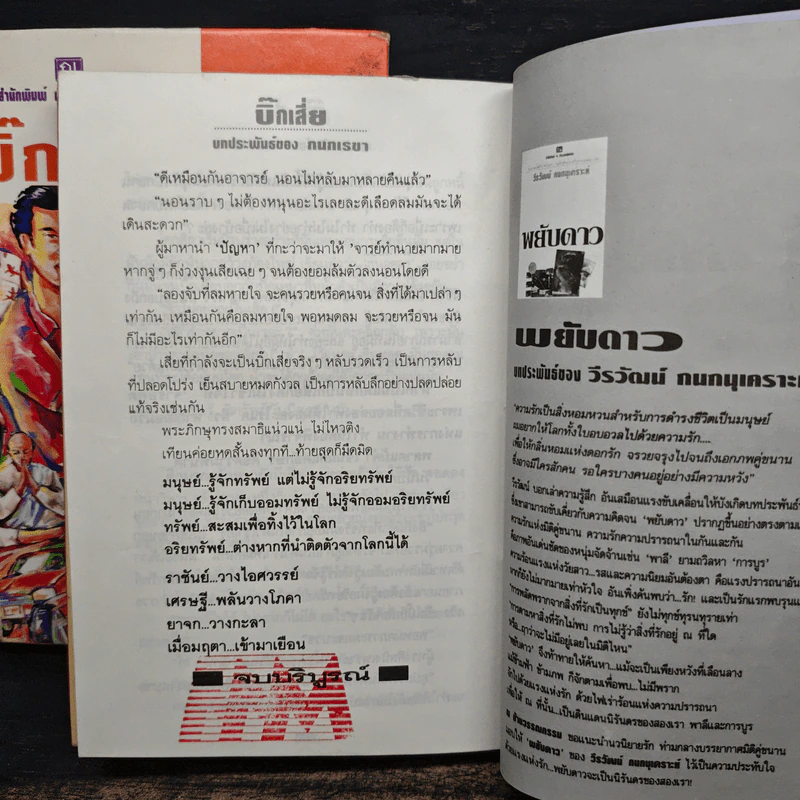 สำนักพิมพ์
บิ๊ก
บิ๊กเสี่ย
บทประพันธ์ของ กนกเรขา
“ดีเหมือนกันอาจารย์ นอนไม่หลับมาหลายคืนแล้ว”
“นอนราบๆ ไม่ต้องหนุนอะไรเลยละดีเลือดลมมันจะได้
เดินสะดวก”
ผู้มาหานำ ‘ปัญหา’ ที่กะว่าจะมาให้ ’จารย์ทำนายมากมาย
หากจู่ๆ ก็ง่วงงุนเสียเฉยๆ จนต้องยอมล้มตัวลงนอนโดยดี
“ลองจับที่ลมหายใจ จะคนรวยหรือคนจน สิ่งที่ได้มาเปล่าๆ
เท่ากัน เหมือนกันคือลมหายใจ พอหมดลม จะรวยหรือจน มัน
ก็ไม่มีอะไรเท่ากันอีก”
เสี่ยที่กำลังจะเป็นบิ๊กเสี่ยจริงๆ หลับรวดเร็ว เป็นการหลับ
ที่ปลอดโปร่ง เย็นสบายหมดกังวล เป็นการหลับลึกอย่างปลดปล่อย
แท้จริงเช่นกัน
พระภิกษุทรงสมาธิแน่วแน่ ไม่ไหวติง
เทียนค่อยหดสั้นลงทุกที...ท้ายสุดก็มืดมิด
มนุษย์...รู้จักทรัพย์ แต่ไม่รู้จักอริยทรัพย์
มนุษย์...รู้จักเก็บออมทรัพย์ ไม่รู้จักออมอริยทรัพย์
ทรัพย์...สะสมเพื่อทิ้งไว้ในโลก
อริยทรัพย์...ต่างหากที่นำติดตัวจากโลกนี้ได้
ราชันย์...วางไอศวรรย์
เศรษฐี...พลันวางโภคา
ยาจก...วางกะลา
เมื่อมฤตา...เข้ามาเยือน
จบบริบูรณ์
วีรวัฒน์ กนกนุเคราะห์
พยับดาว
พยับดาว
บทประพันธ์ของ วีรวัฒน์ กนกนุเคราะห์
“ความรักเป็นสิ่งหอมหวานสำหรับการดำรงชีวิตเป็นมนุษย์
ผมอยากให้โลกทั้งใบอบอวลไปด้วยความรัก....
เพื่อให้กลิ่นหอมแห่งดอกรัก จรวยจรุงไปจนถึงเอกภพคู่ขนาน
ซึ่งอาจมีใครสักคน รอใครบางคนอยู่อย่างมีความหวัง”
วีรวัฒน์ บอกเล่าความรู้สึก อันเสมือนแรงขับเคลื่อนให้บังเกิดบทประพันธ์
ซึ่งเขาสามารถขับเคี่ยวกับความคิดจน ‘พยับดาว’ ปรากฏขึ้นอย่างตรงตาม
ความรักแห่งมิติคู่ขนาน ความรักความปรารถนาในกันและกัน
คือภาพอันเด่นชัดของหนุ่มจัดจ้านเช่น ‘พาลี’ ยามถวิลหา ‘การบูร’
ความร้อนแรงแห่งวัยสาว...รสและความนิยมอันต้องตา คือแรงปรารถนาอัน
หากยังไม่มากมายเท่าหัวใจ อันเพิ่งค้นพบว่า..รัก! และเป็นรักแรกพบรุนแ
“การพลัดพรากจากสิ่งที่รักเป็นทุกข์” ยังไม่ทุกข์ทุรนทุรายเท่า
“การตามหาสิ่งที่รักไม่พบ การไม่รู้ว่าสิ่งที่รักอยู่ ณ ที่ใด
หรือ..ฤาว่าจะไม่มีอยู่เลยในมิติไหน”
‘พยับดาว’ จึงท้าทายให้ค้นหา...แม้จะเป็นเพียงหวังที่เลือนลาง
แม้ข้ามฟ้า ข้ามภพ ก็จักตามเพื่อพบ...ไม่มีพราก
รักไปด้วยแรงแห่งรัก ด้วยไฟเร่าร้อนแห่งความปรารถนา
เพื่อให้ ณ ที่นั้น...เป็นดินแดนนิรันดรของสองเรา พาลีและการบูร
ณ บ้านวรรณกรรม ขอแนะนำนวนิยายรัก ท่ามกลางบรรยากาศมิติคู่ขนาน
มอบให้ ‘พยับดาว’ ของ วีรวัฒน์ กนกนุเคราะห์ ไว้เป็นความประทับใจ
ด้วยแรงแห่งรัก...พยับดาวจะเป็นนิรันดรของสองเรา!